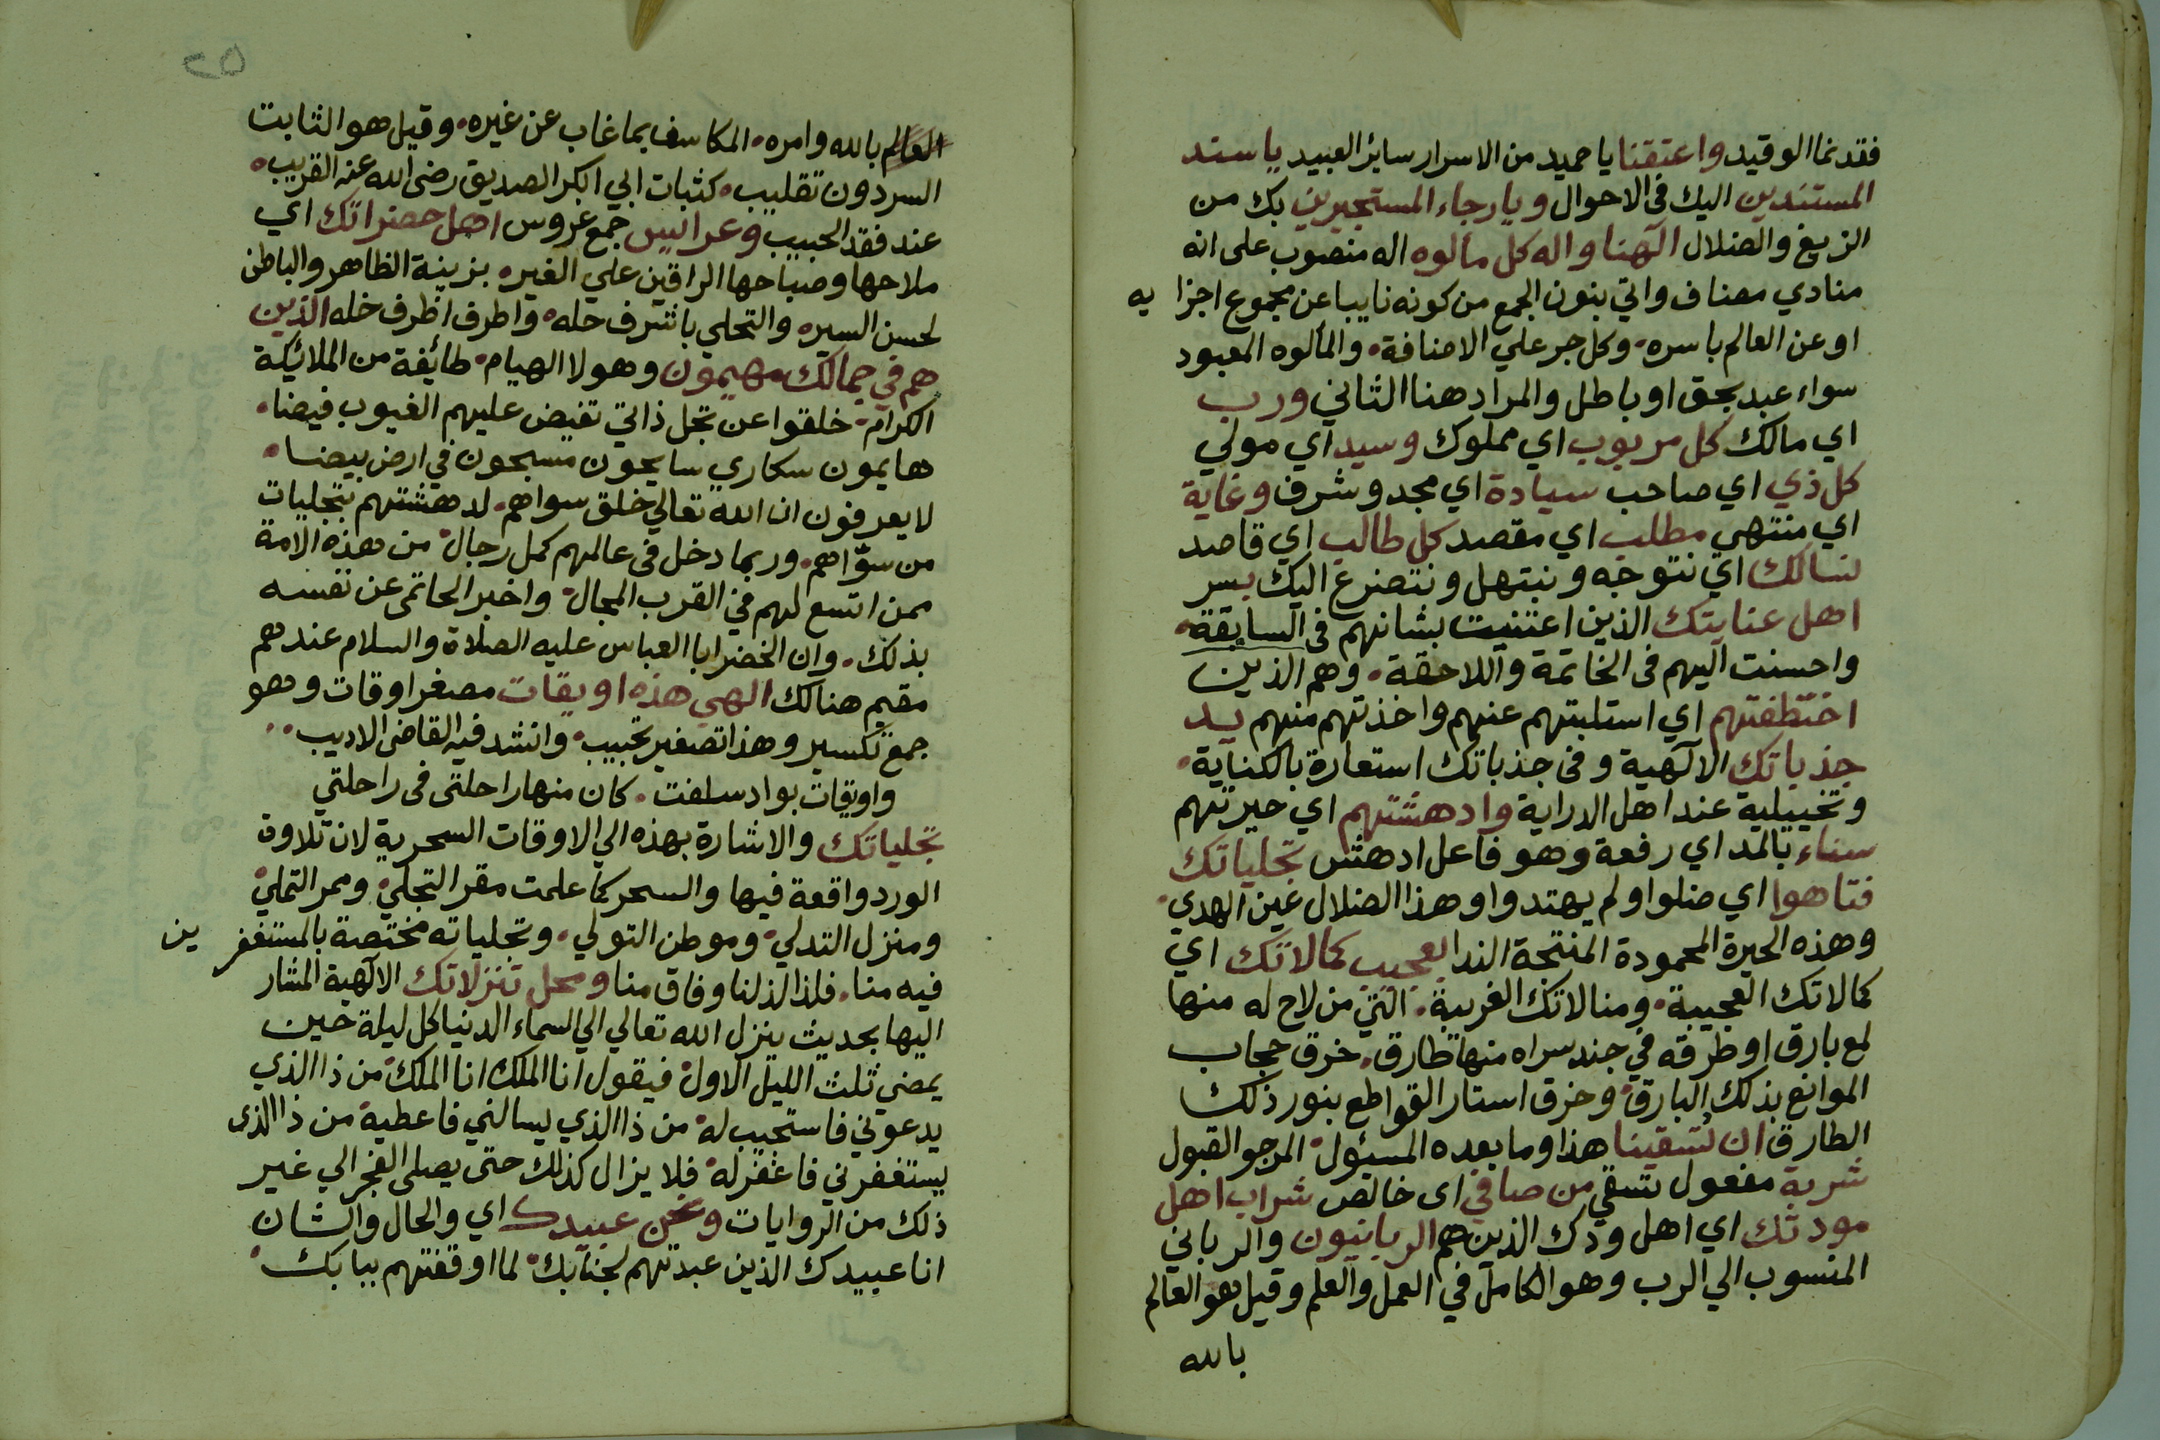 فقد نما الوقيد واعتقنا يا حميد من الاسرار سائر العبيد يا سند
المستندين اليك في الاحوال ويا رجاء المستجيرين بك من
الزيغ والضلال الهنا واله كل مالوه اله منصوب على انه
منادي مضاف واتي بنون الجمع من كونه نايبا عن مجموع اجزا يه
او عن العالم باسره وكل جر علي الاضافة والمألوه المعبود
سواء عبد بحق او باطل والمراد هنا الثاني ورب
اي مالك كل مربوب اي مملوك وسيد اي مولي
كل ذي اي صاحب سيادة اي مجد وشرف وغاية
اي منتهي مطلب اي مقصد كل طالب اي قاصد
نسالك اي نتوجه ونبتهل ونتضرع اليك بسر
اهل عنايتك الذين اعتنيت بشانهم فى السابقة
واحسنت اليهم فى الخاتمة واللاحقة وهم الذين
اختطفتهم اي استلبتهم عنهم واخذتهم منهم يد
جذباتك الالهية وفى جذباتك استعارة بالكناية
وتخييلية عند اهل الدراية وادهشتهم اي حيرتهم
سناء بالمد اي رفعة وهو فاعل ادهش تجلياتك
فتاهوا اي ضلوا ولم يهتدوا وهذا الضلال عين الهدي
وهذه الحيرة المحمودة المنتجة الندا بعجيب كمالاتك اي
كمالاتك العجيبة ومنالاتك الغريبة التي من لاح له منها
لمع بارق او طرقه في جند سراه منها طارق خرق حجاب
الموانع بذلك البارق وخرق استار القواطع بنور ذلك
الطارق ان تسقينا هذا وما بعده المسئول المرجو القبول
شربة مفعول تسقي من صافي اى خالص شراب اهل
مودتك اي اهل ودك الذين هم الربانيون والرباني
المنسوب الي الرب وهو الكامل في العمل والعلم وقيل هو العالم
بالله
العالم بالله وامره المكاسف بما غاب عن غيره وقيل هو الثابت
السر دون تقليب كثبات ابي ابكر الصديق رضى الله عنه القريب
عند فقد الحبيب وعرائس جمع عروس اهل حضراتك اي
ملاحها وصباحها الراقين علي الغير بزينة الظاهر والباطن
لحسن السيره والتحلي باشرف حله واطرف اظرف خله الذين
هم في جمالك مهيمون وهولا الهيام طائفة من الملائكة
الكرام خلقوا عن تجل ذاتي تفيض عليهم الغيوب فيضا
هايمون سكاري سايحون مسبحون في ارض بيضا
لا يعرفون ان الله تعالي خلق سواهم لدهشتهم بتجليات
من سوّاهم وربما دخل فى عالمهم كمل رجال من هذه الامة
ممن اتسع لهم في القرب المجال واخبر الحاتمى عن نفسه
بذلك وان الخضر ابا العباس عليه الصلاة والسلام عندهم
مقيم هنالك الهي هذه اويقات مصغر اوقات وهو
جمع تكسير وهذا تصغير تحبيب وانشد فيه القاضى الاديب
واويقات بواد سلفت كان منها راحلتى فى راحلتي
تجلياتك والاشارة بهذه الي الاوقات السحرية لان تلاوة
الورد واقعة فيها والسحر كما علمت مقر التجلي وممر التملي
ومنزل التدلي وموطن التولي وتجلياته مختصة بالمستغفر ين
فيه منا فلذا لذ لنا وفاق منا ومحل تنزلاتك الالهية المشار
اليها بحديث ينزل الله تعالي الي السماء الدنيا كل ليلة حين
يمضي ثلث الليل الاول فيقول انا الملك انا الملك من ذا الذي
يدعوني فاستجيب له من ذا الذي يسالني فاعطيه من ذا الذى
يستغفرني فاغفر له فلا يزال كذلك حتى يصلى الفجر الي غير
ذلك من الروايات ونحن عبيدك اي والحال والشان
انا عبيدك الذين عبدتهم لجنابك لما اوقفتهم ببابك